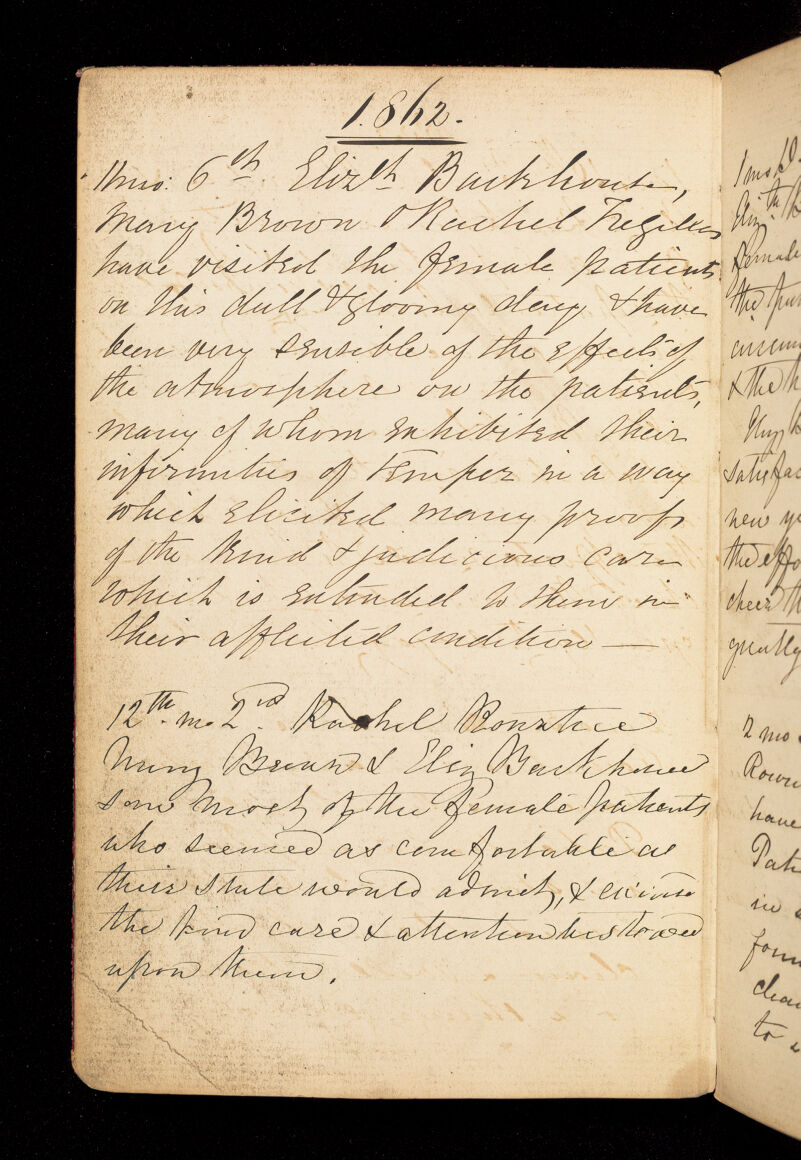 1862.
11mo: 6th. Elizth Backhouse,
Mary Brown & Rachel Fregelles
have visited the female patients
on this dull & gloomy day, & have
been very sensible of the effects of
the atmosphere on the patients,
many of whom exhibited their
infirmities of temper in a way
which elicited many proofs
of the kind & judicious care
which is extended to them in
their afflicted condition —
12th. mo 2nd. Rachel Rowntree
Mary Brown & Eliz Backhouse
saw most of the female patients
who seemed as comfortable as
their state would admit, &
the kind care & attention bestowed
upon them.
1 mo
Eliz th
female
the pat
& the h
Eliz B
satisfac
new ye
the effo
cheer th
greatly
2 mo
Rown
have
Pati
in
foun
to